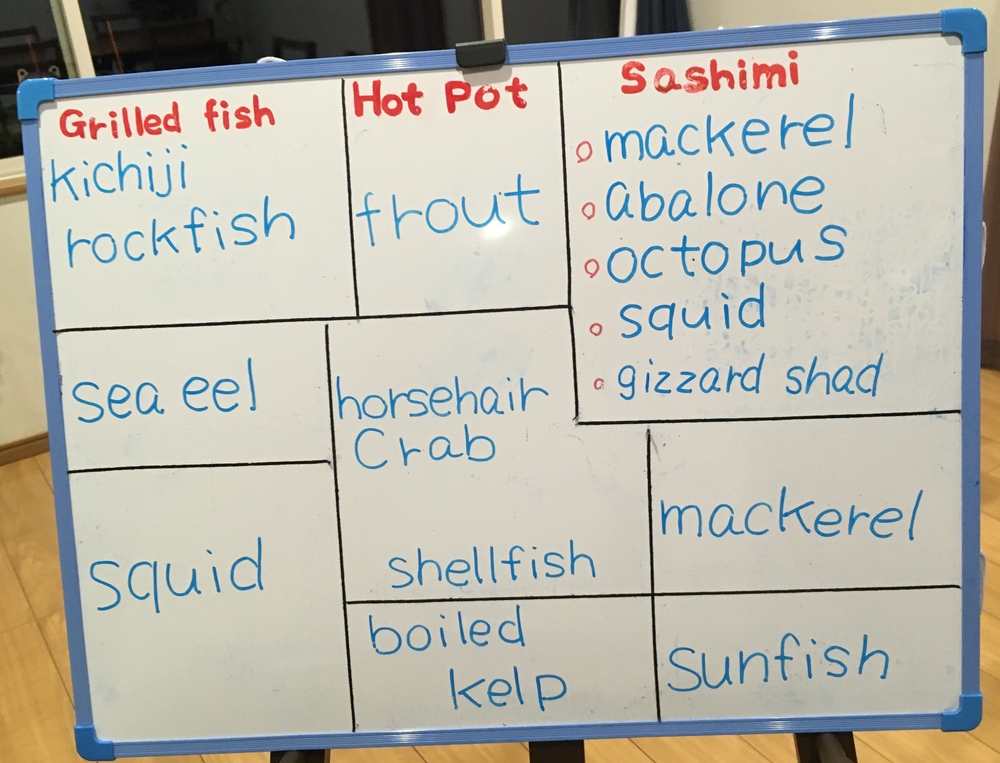 Grilled fish
kichiji
rockfish
Hot Pot
frout
Sashimi
mackerel
abalone
octopus
squid
gizzard shad
sea eel
horsehair
Crab
shellfish
mackerel
squid
boiled
kelp
Sunfish